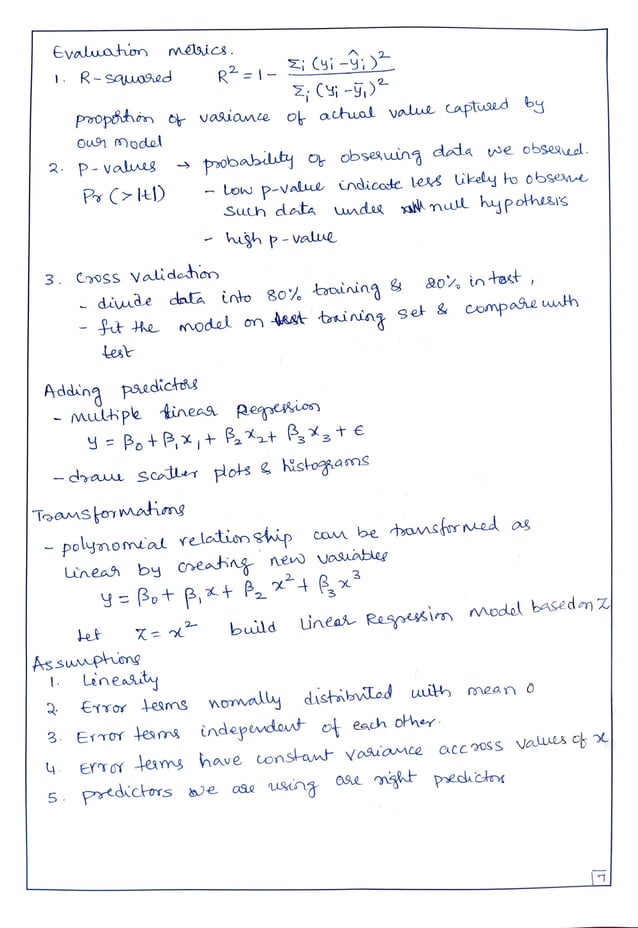 Evaluation metrics.
1. R-squared R² = 1 - Σi (yi - ŷi)² / Σi (yi - ȳi)²
proportion of variance of actual value captured by
our model
2. P-values → probability of observing data we observed.
Pr (>|t|) - Low p-value indicate less likely to observe
such data under null hypothesis
- high p-value
3. Cross Validation
- divide data into 80% training & 20% in test,
- fit the model on training set & compare with
test
Adding predictors
- multiple linear Regression
y = β₀ + β₁x₁ + β₂x₂ + β₃x₃ + ε
- draw scatter plots & histograms
Transformations
- polynomial relationship can be transformed as
linear by creating new variables
y = β₀ + β₁x + β₂x² + β₃x³
Let z = x² build Linear Regression Model based on Z
Assumptions
1. Linearity
2. Error terms normally distributed with mean 0
3. Error terms independent of each other.
4. Error terms have constant variance accross values of x
5. predictors we are using are right predictors
7